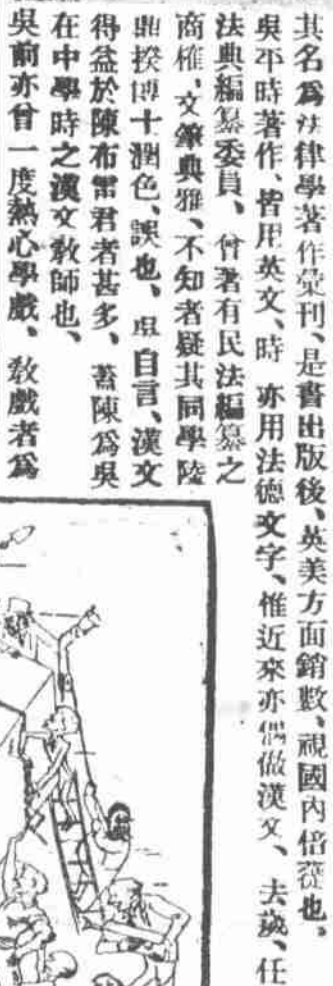 其名爲法律學著作彙刊、是書出版後、英美方面銷數、視國內倍蓰也、
吳平時著作、皆用英文、時亦用法德文字、惟近來亦偶做漢文、去歲、任
法典編纂委員、曾著有民法編纂之
商榷、文筆典雅、不知者疑其同學陸
鼎揆博士潤色、誤也、吳自言、漢文
得益於陳布雷君者甚多、蓋陳爲吳
在中學時之漢文敎師也、
吳前亦曾一度熱心學戲、敎戲者爲